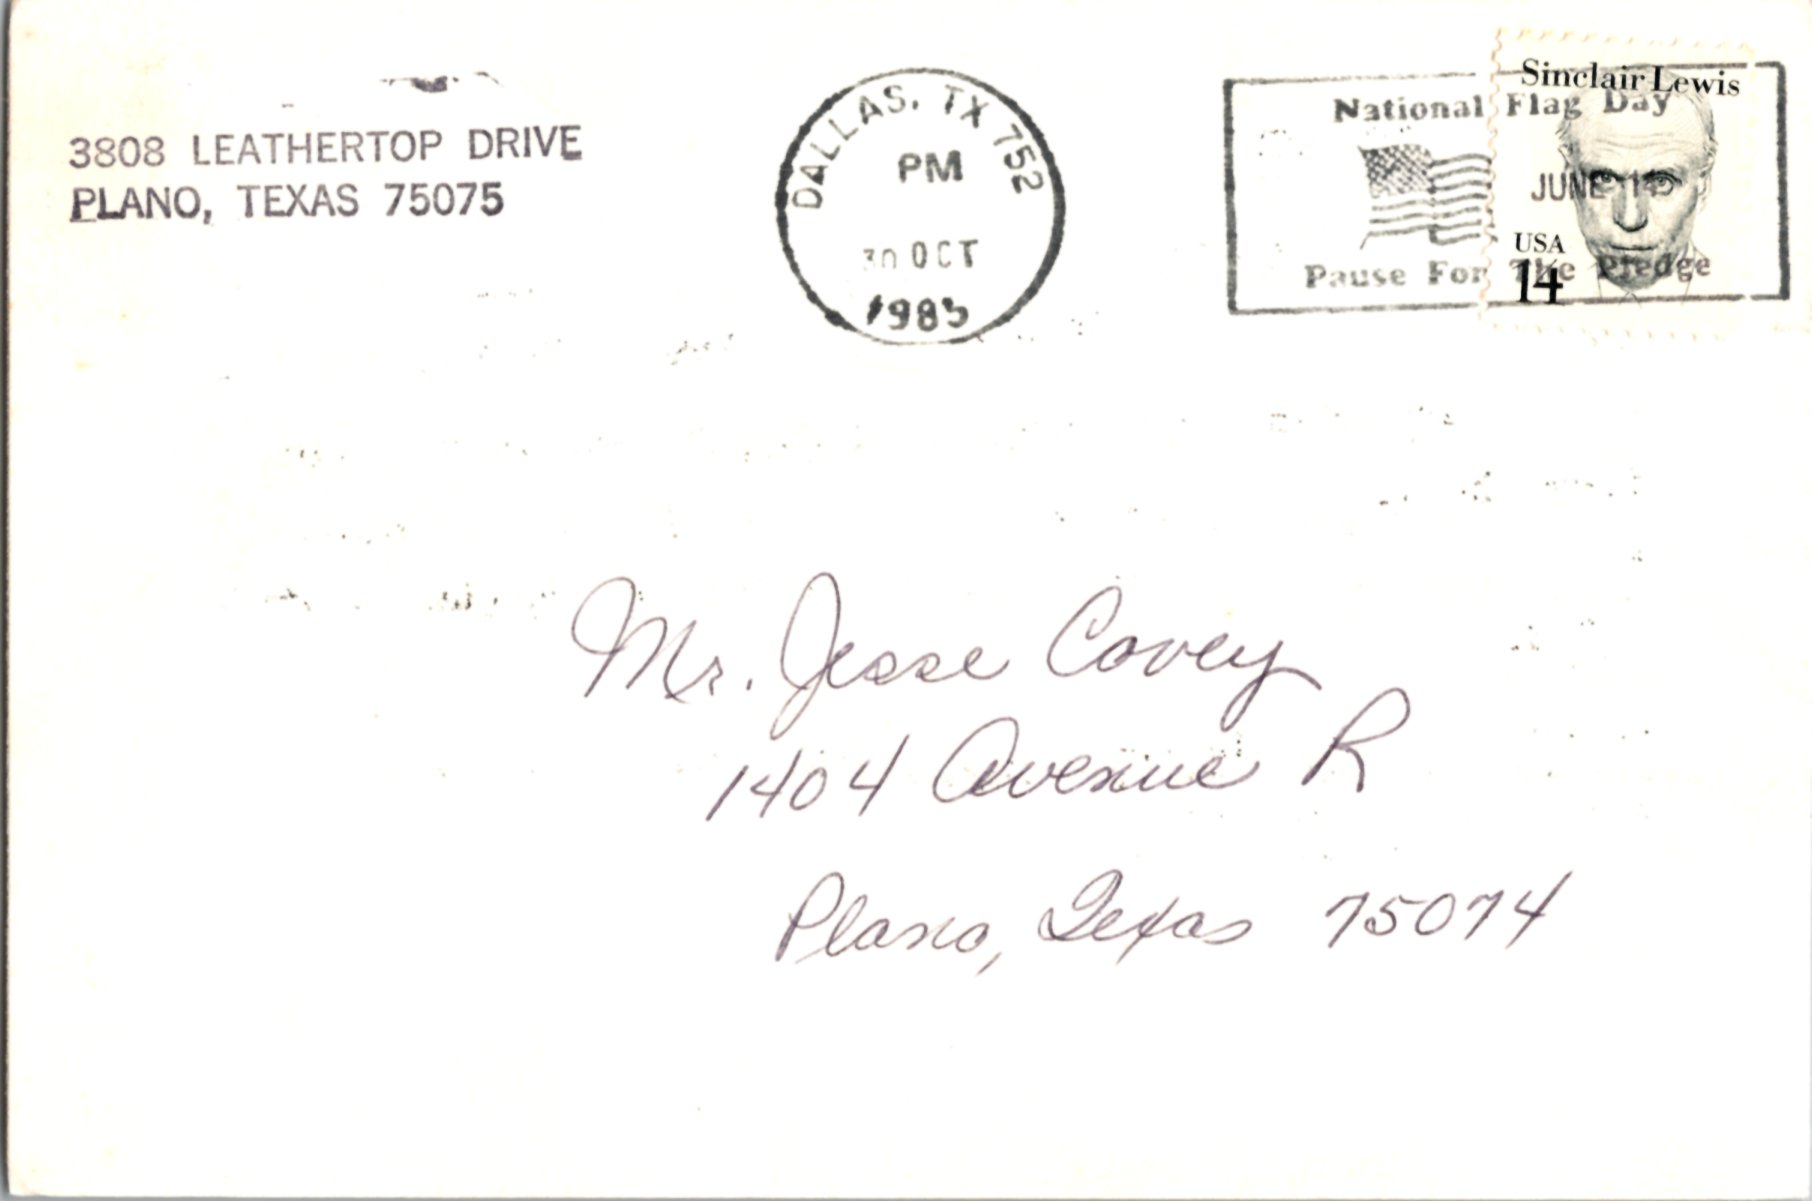 3808 LEATHERTOP DRIVE
PLANO, TEXAS 75075
DALLAS, TX 752
PM
30 OCT
1985
National Flag Day
JUNE 14
Pause For The Pledge
Sinclair Lewis
USA
14
Mr. Jesse Covey
1404 Avenue R
Plano, Texas 75074